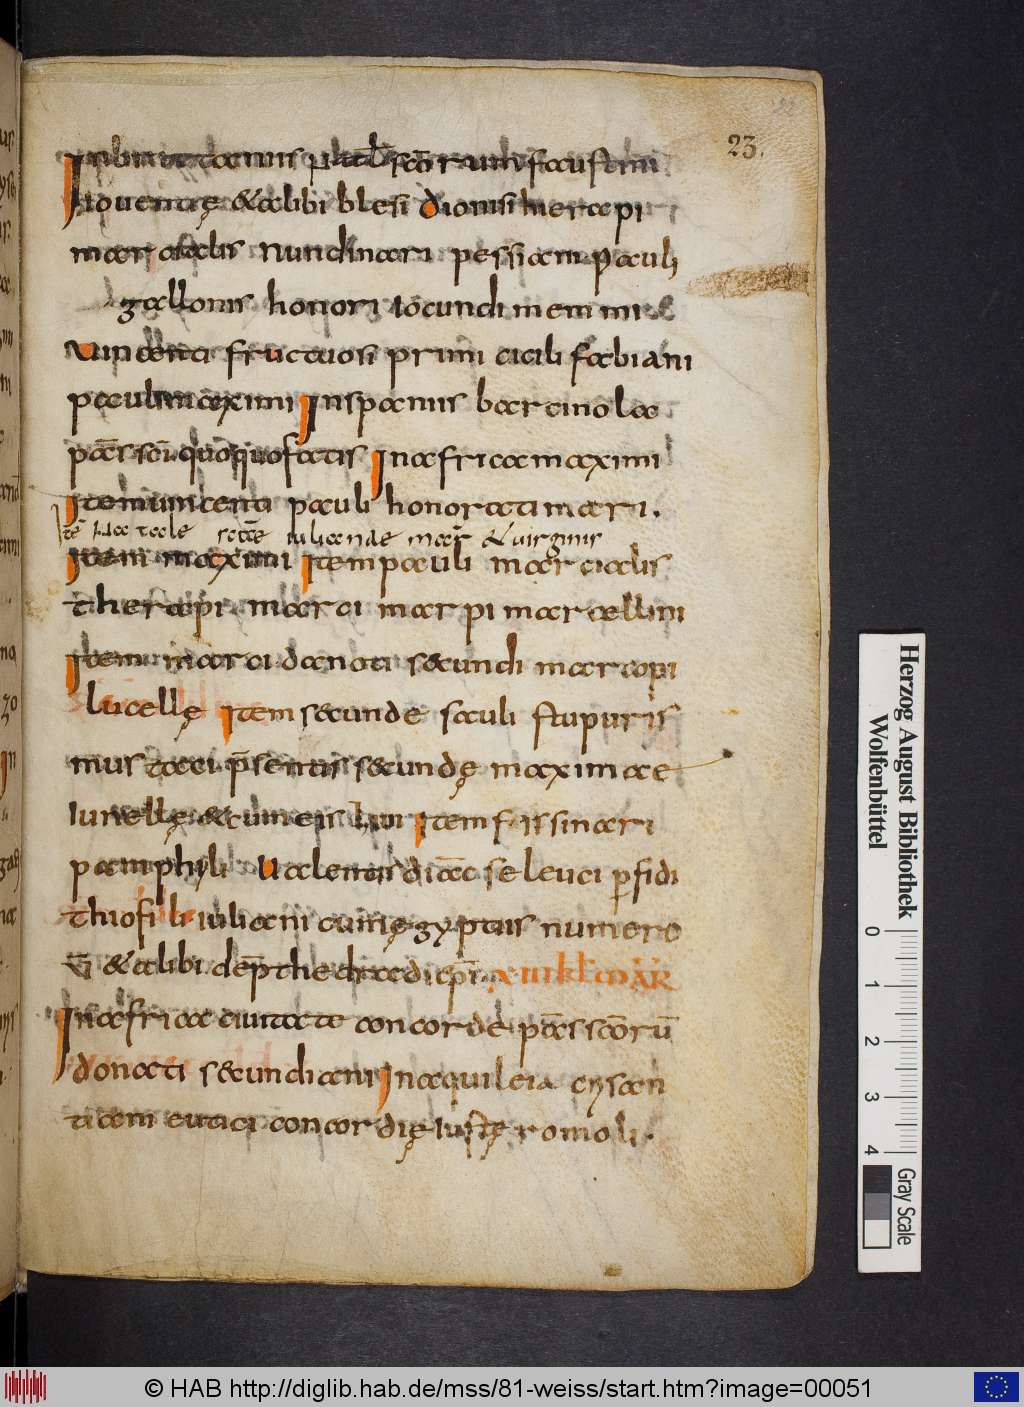 23.
In brittaniis nat̄ sc̄orum faustini
Iouentię & alibi blesi dionisi hierapi
marcialis nundinari pessiam pauli
gallonis honori iocundi memmi
Vincenti fructuosi primi cicili fabiani
pauli maximi Inspaniis barcino la
pas̄ sc̄i quoquofatis Inafrica maximi
Item uincenti pauli honorati mari.
tē Hac tale sc̄āe iulianae mar̄ & uirginis
Item maximi Item pauli marcialis
therapi marci marpi marcellini
Item marci donati secundi marcopi
lucellę Item secunde sculi stupuris
mus taci p̄sentis secundę maximae
iunellę & cum eis Item fissinari
pamphyli Ualentis diāc seleuci perfidi
thiofili iuliani cum ęgyptiis numero
& alibi dep̄ the ep̄i xiiii kl mār̄
Inafrica ciuitate concorde pas̄ sc̄orū
donati secundiani Inaquileia crysan
tiani eutici concordię iustę romoli.
Herzog August Bibliothek
Wolfenbüttel
0 1 2 3 4
Gray Scale
© HAB http://diglib.hab.de/mss/81-weiss/start.htm?image=00051